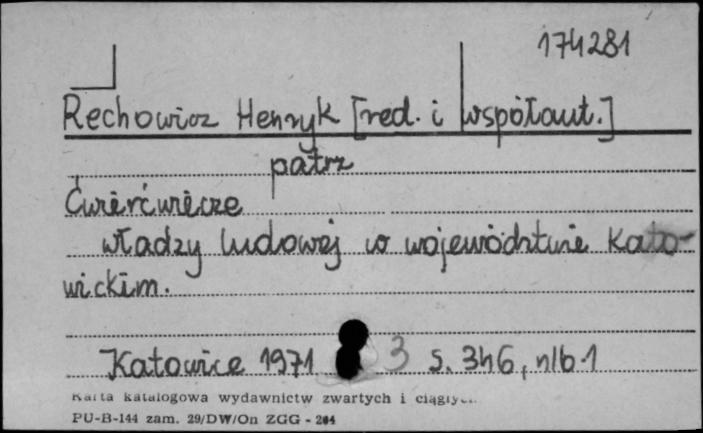 174281
Rechowicz Henryk [red. i współaut.]
patrz
Ćwierćwiecze
władzy ludowej w województwie Kato-
wickim.
Katowice 1971 3 s. 346, nlb 1
Karta katalogowa wydawnictw zwartych i ciągłych
PU-B-144 zam. 29/DW/On ZGG - 204